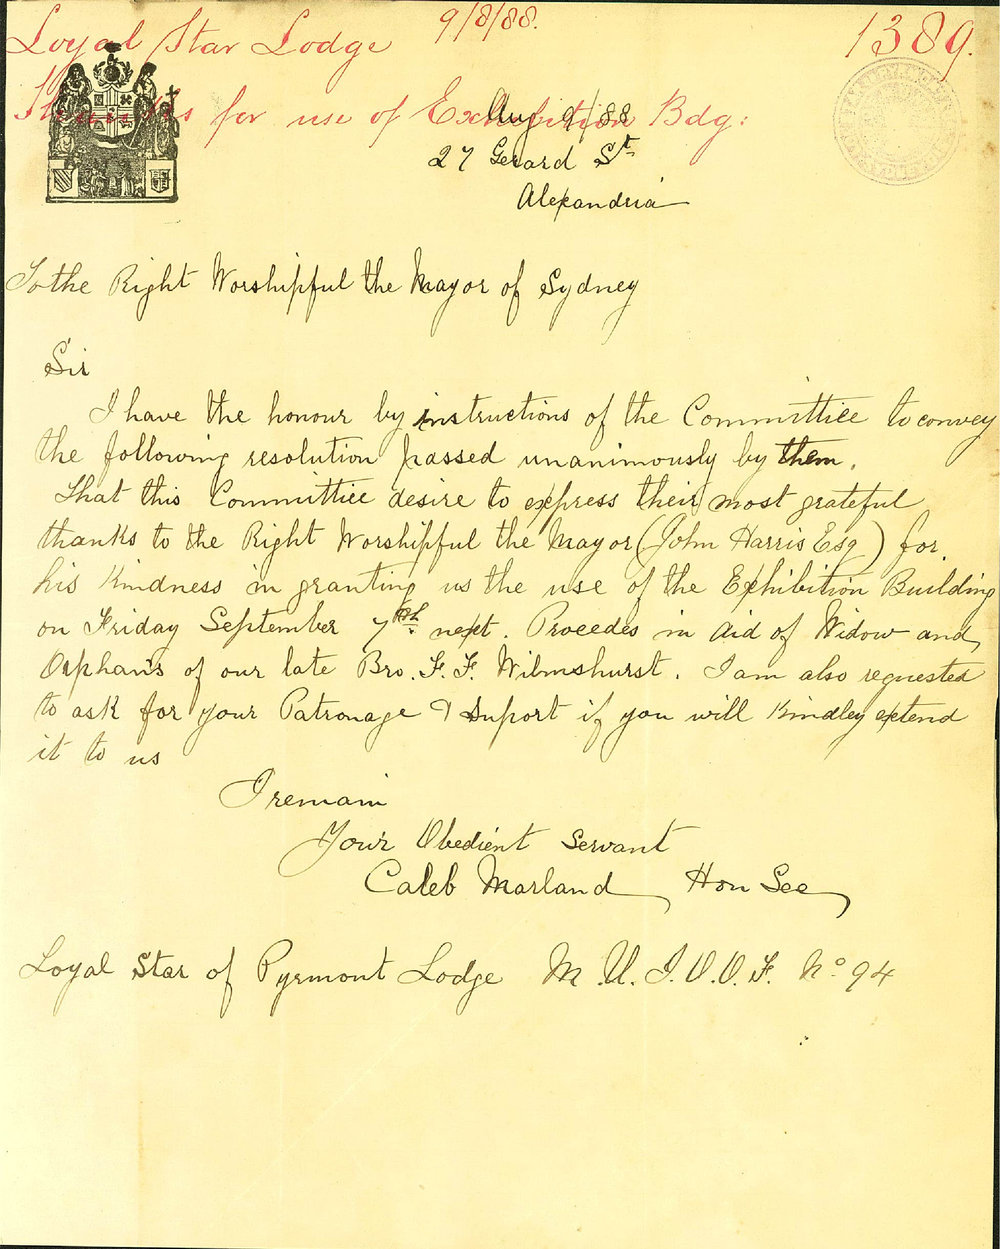 Loyal Star Lodge 9/8/88. 1389.
Thanks for use of Exhibition Bdg:
Aug 9/88
27 Gerard St
Alexandria
To the Right Worshipful the Mayor of Sydney
Sir
I have the honour by instructions of the Committiee to convey
the following resolution passed unanimously by them.
that this Committiee desire to express their most grateful
thanks to the Right Worshipful the Mayor (John Harris Esq) for
his kindness in granting us the use of the Exhibition Building
on Friday September 7th next. Proceedes in aid of Widow and
Orphans of our late Bro. F. F. Wilmshurst. I am also requested
to ask for your Patronage & suport if you will kindley extend
it to us
I remain
Your Obedient Servant
Caleb Marland Hon See
Loyal Star of Pyrmont Lodge M.U.I.O.O.F. No 94